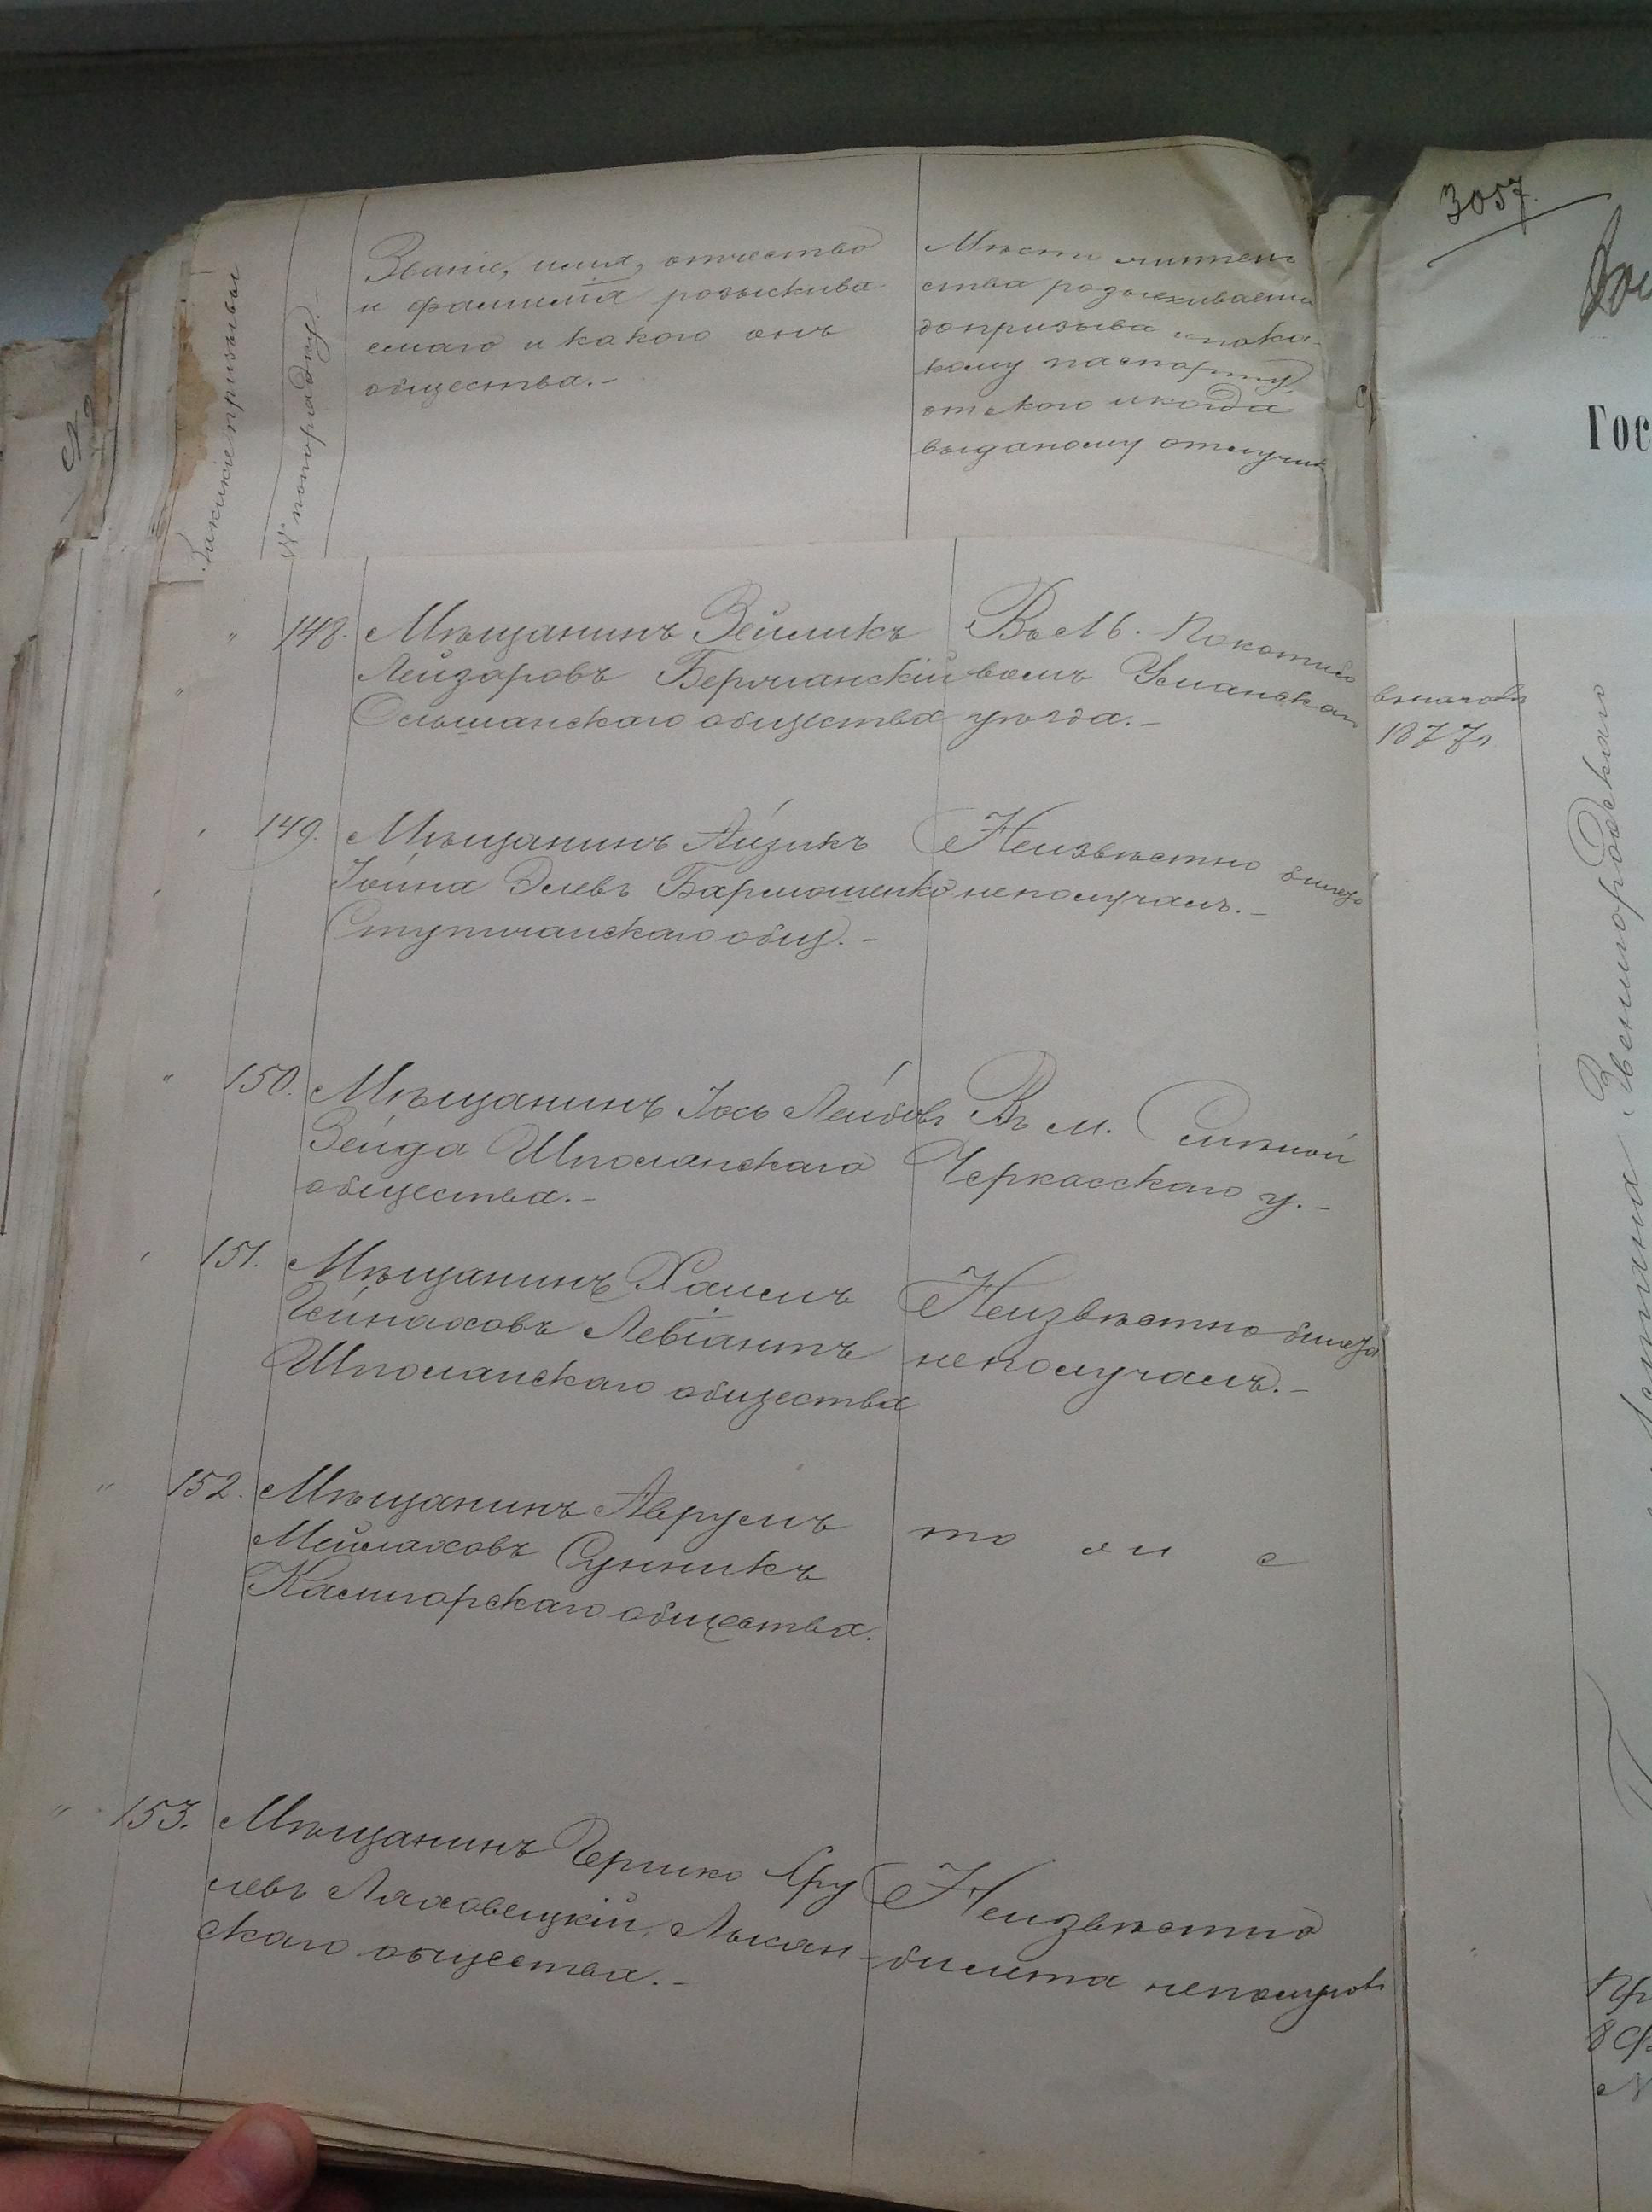 3057.
Гос
Званіе, имя, отчество
и фамилія розыскива
емаго и какого онъ
общества.-
Мѣсто жител
ства розыскиваема
до призыва и по ка-
кому паспорту
отъ кого и когда
выданому отлуч
№ по порядку.
призывы
" 148. Мѣщанинъ Зейликъ
Лейзоровъ Бершанскій
Ольшанскаго общества
Въ М. Покотило
вомъ Уманскаго
уѣзда.-
вначалѣ
1877г
149. Мѣщанинъ Айзикъ
Іойна Элевъ Бармошенко
Ступичанскаго общ.-
Неизвѣстно билета
неполучалъ.-
" 150. Мѣщанинъ Іось Лейбовъ
Зейда Шполанскаго
общества.-
Въ м. Смѣлой
Черкасскаго у.-
151. Мѣщанинъ Хаимъ
Гейнаховъ Левіантъ
Шполанскаго общества
Неизвѣстно билета
неполучалъ.-
" 152. Мѣщанинъ Аврумъ
Мейлаховъ Сунникъ
Калигорскаго общества.
то же
" 153. Мѣщанинъ Гершко Сру
левъ Ляховецкій, Лысян-
скаго общества.-
Неизвѣстно
билета неполучалъ
Звенигородскаго